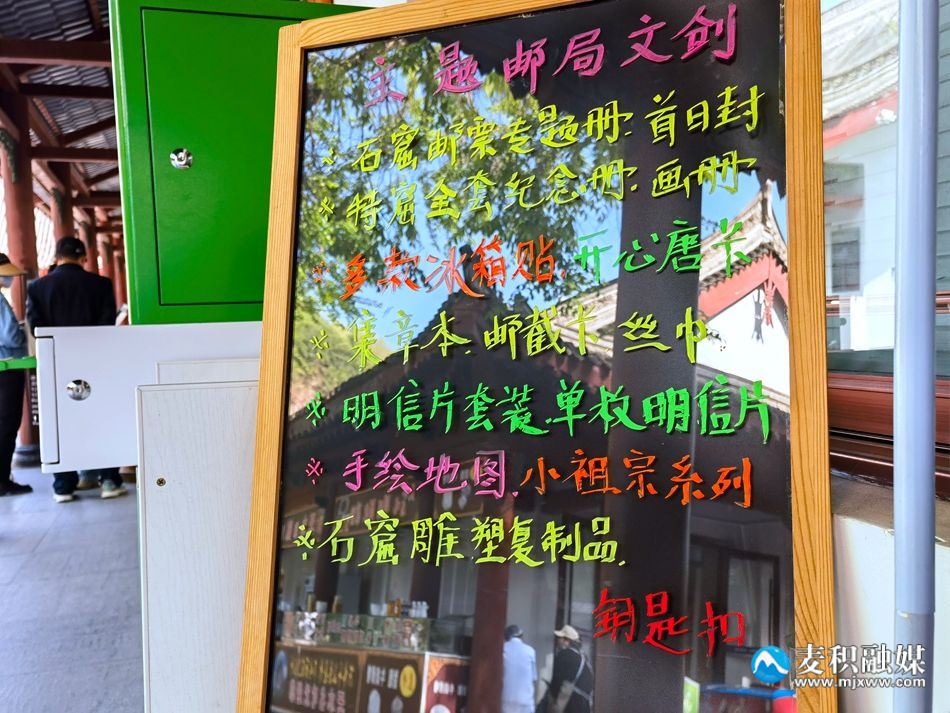 主题邮局文创
※石窟邮票专题册.首日封
※特窟全套纪念册.画册
※多款冰箱贴.开心唐卡
※集章本.邮戳卡 丝巾
※明信片套装.单枚明信片
※手绘地图.小祖宗系列
※石窟雕塑复制品.
钥匙扣
麦积融媒
www.mjxww.com